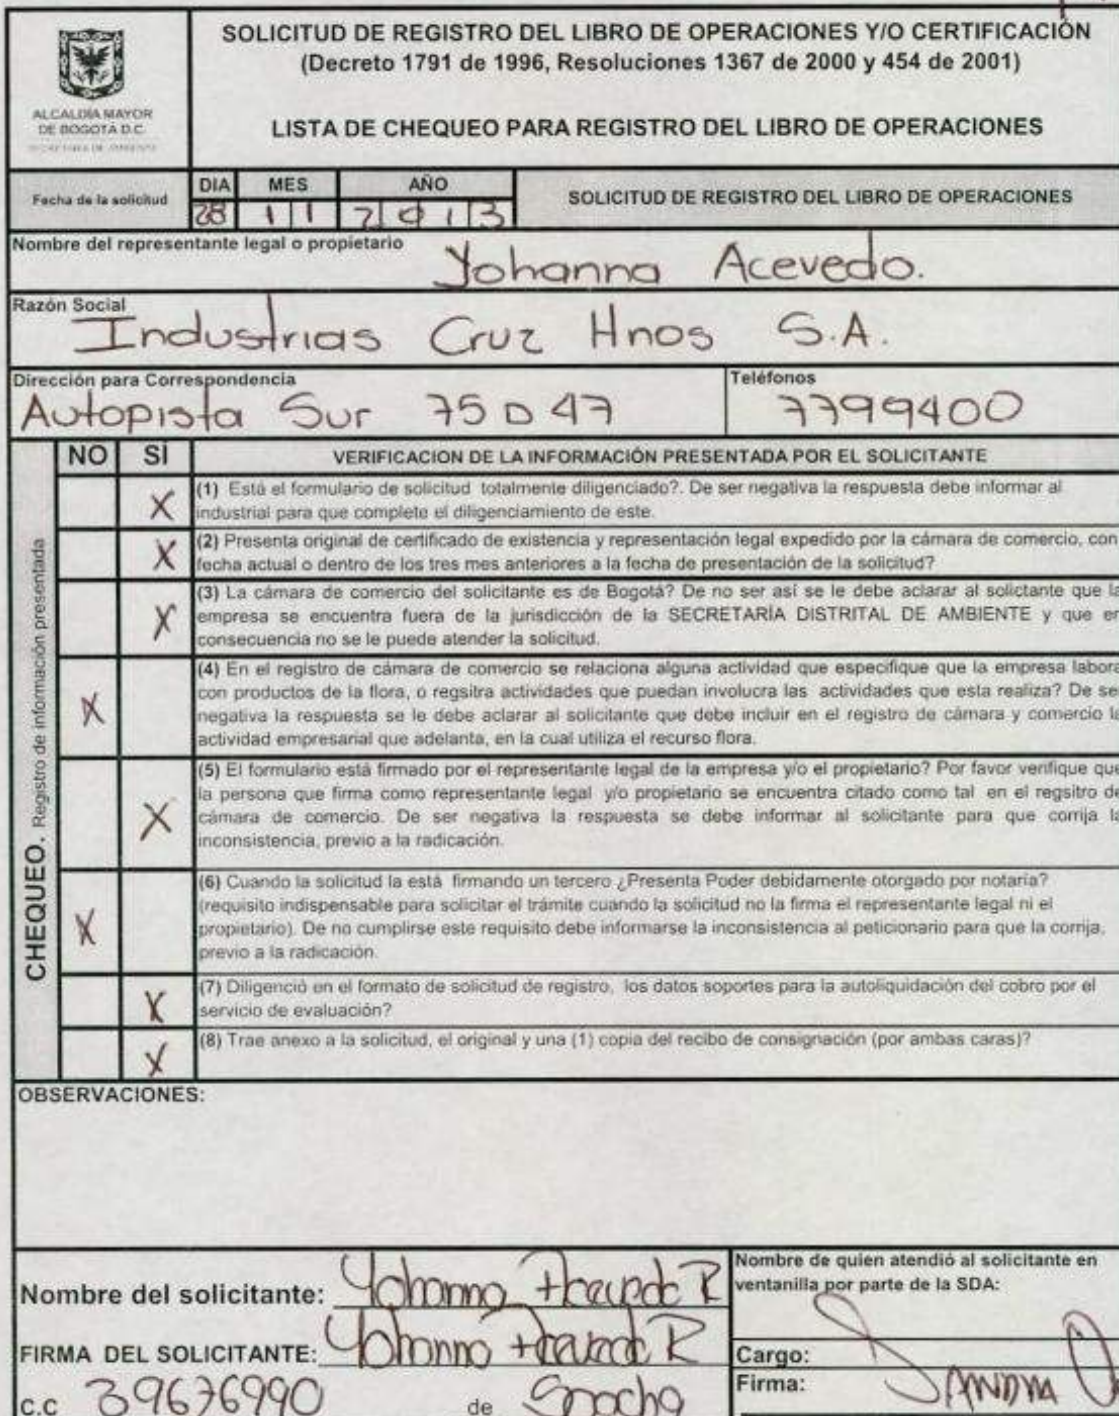 SOLICITUD DE REGISTRO DEL LIBRO DE OPERACIONES Y/O CERTIFICACIÓN
(Decreto 1791 de 1996, Resoluciones 1367 de 2000 y 454 de 2001)
ALCALDIA MAYOR
DE BOGOTÁ D.C.
LISTA DE CHEQUEO PARA REGISTRO DEL LIBRO DE OPERACIONES
Fecha de la solicitud
DIA MES AÑO
28 11 2013
SOLICITUD DE REGISTRO DEL LIBRO DE OPERACIONES
Nombre del representante legal o propietario
Yohanna Acevedo.
Razón Social
Industrias Cruz Hnos S.A.
Dirección para Correspondencia
Autopista Sur 75 D 47
Teléfonos
7799400
CHEQUEO. Registro de información presentada
NO SÍ VERIFICACION DE LA INFORMACIÓN PRESENTADA POR EL SOLICITANTE
X (1) Está el formulario de solicitud totalmente diligenciado?. De ser negativa la respuesta debe informar al
industrial para que complete el diligenciamiento de este.
X (2) Presenta original de certificado de existencia y representación legal expedido por la cámara de comercio, con
fecha actual o dentro de los tres mes anteriores a la fecha de presentación de la solicitud?
X (3) La cámara de comercio del solicitante es de Bogotá? De no ser así se le debe aclarar al solictante que la
empresa se encuentra fuera de la jurisdicción de la SECRETARÍA DISTRITAL DE AMBIENTE y que en
consecuencia no se le puede atender la solicitud.
X (4) En el registro de cámara de comercio se relaciona alguna actividad que especifique que la empresa labora
con productos de la flora, o regsitra actividades que puedan involucra las actividades que esta realiza? De ser
negativa la respuesta se le debe aclarar al solicitante que debe incluir en el registro de cámara y comercio la
actividad empresarial que adelanta, en la cual utiliza el recurso flora.
X (5) El formulario está firmado por el representante legal de la empresa y/o el propietario? Por favor verifique que
la persona que firma como representante legal y/o propietario se encuentra citado como tal en el regsitro de
cámara de comercio. De ser negativa la respuesta se debe informar al solicitante para que corrija la
inconsistencia, previo a la radicación.
X (6) Cuando la solicitud la está firmando un tercero ¿Presenta Poder debidamente otorgado por notaría?
(requisito indispensable para solicitar el trámite cuando la solicitud no la firma el representante legal ni el
propietario). De no cumplirse este requisito debe informarse la inconsistencia al peticionario para que la corrija,
previo a la radicación.
X (7) Diligenció en el formato de solicitud de registro, los datos soportes para la autoliquidación del cobro por el
servicio de evaluación?
X (8) Trae anexo a la solicitud, el original y una (1) copia del recibo de consignación (por ambas caras)?
OBSERVACIONES:
Nombre del solicitante: Yohanna Acevedo R
FIRMA DEL SOLICITANTE: Yohanna Acevedo R
C.C 39676990 de Soacha
Nombre de quien atendió al solicitante en
ventanilla por parte de la SDA:
Cargo:
Firma: SANDRA